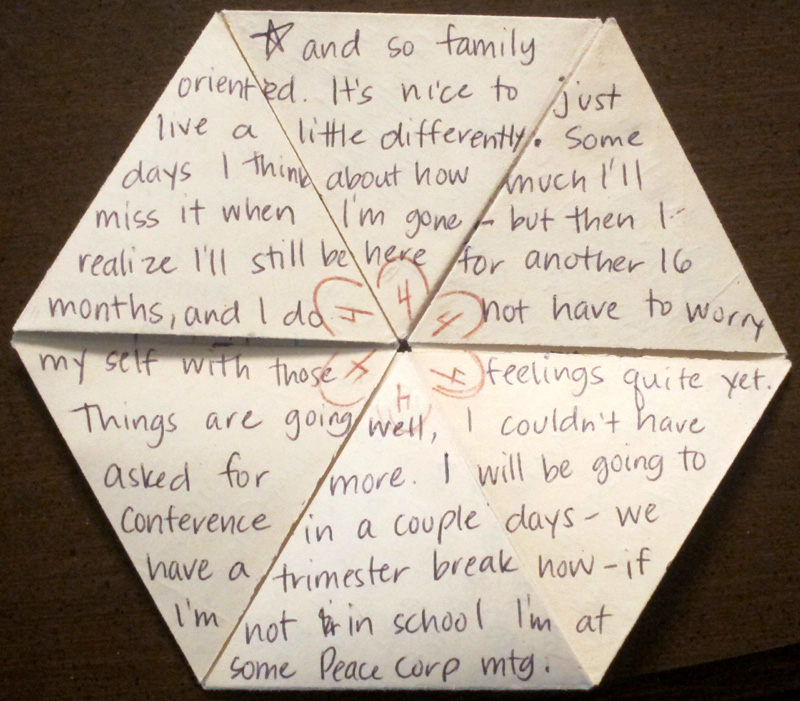 ☆ and so family
oriented. It's nice to just
live a little differently. Some
days I think about how much I'll
miss it when I'm gone - but then I
realize I'll still be here for another 16
months, and I do not have to worry
4 4 4
my self with those feelings quite yet.
4 4 4
Things are going well, I couldn't have
asked for more. I will be going to
Conference in a couple days - we
have a trimester break now - if
I'm not in school I'm at
some Peace Corp mtg.